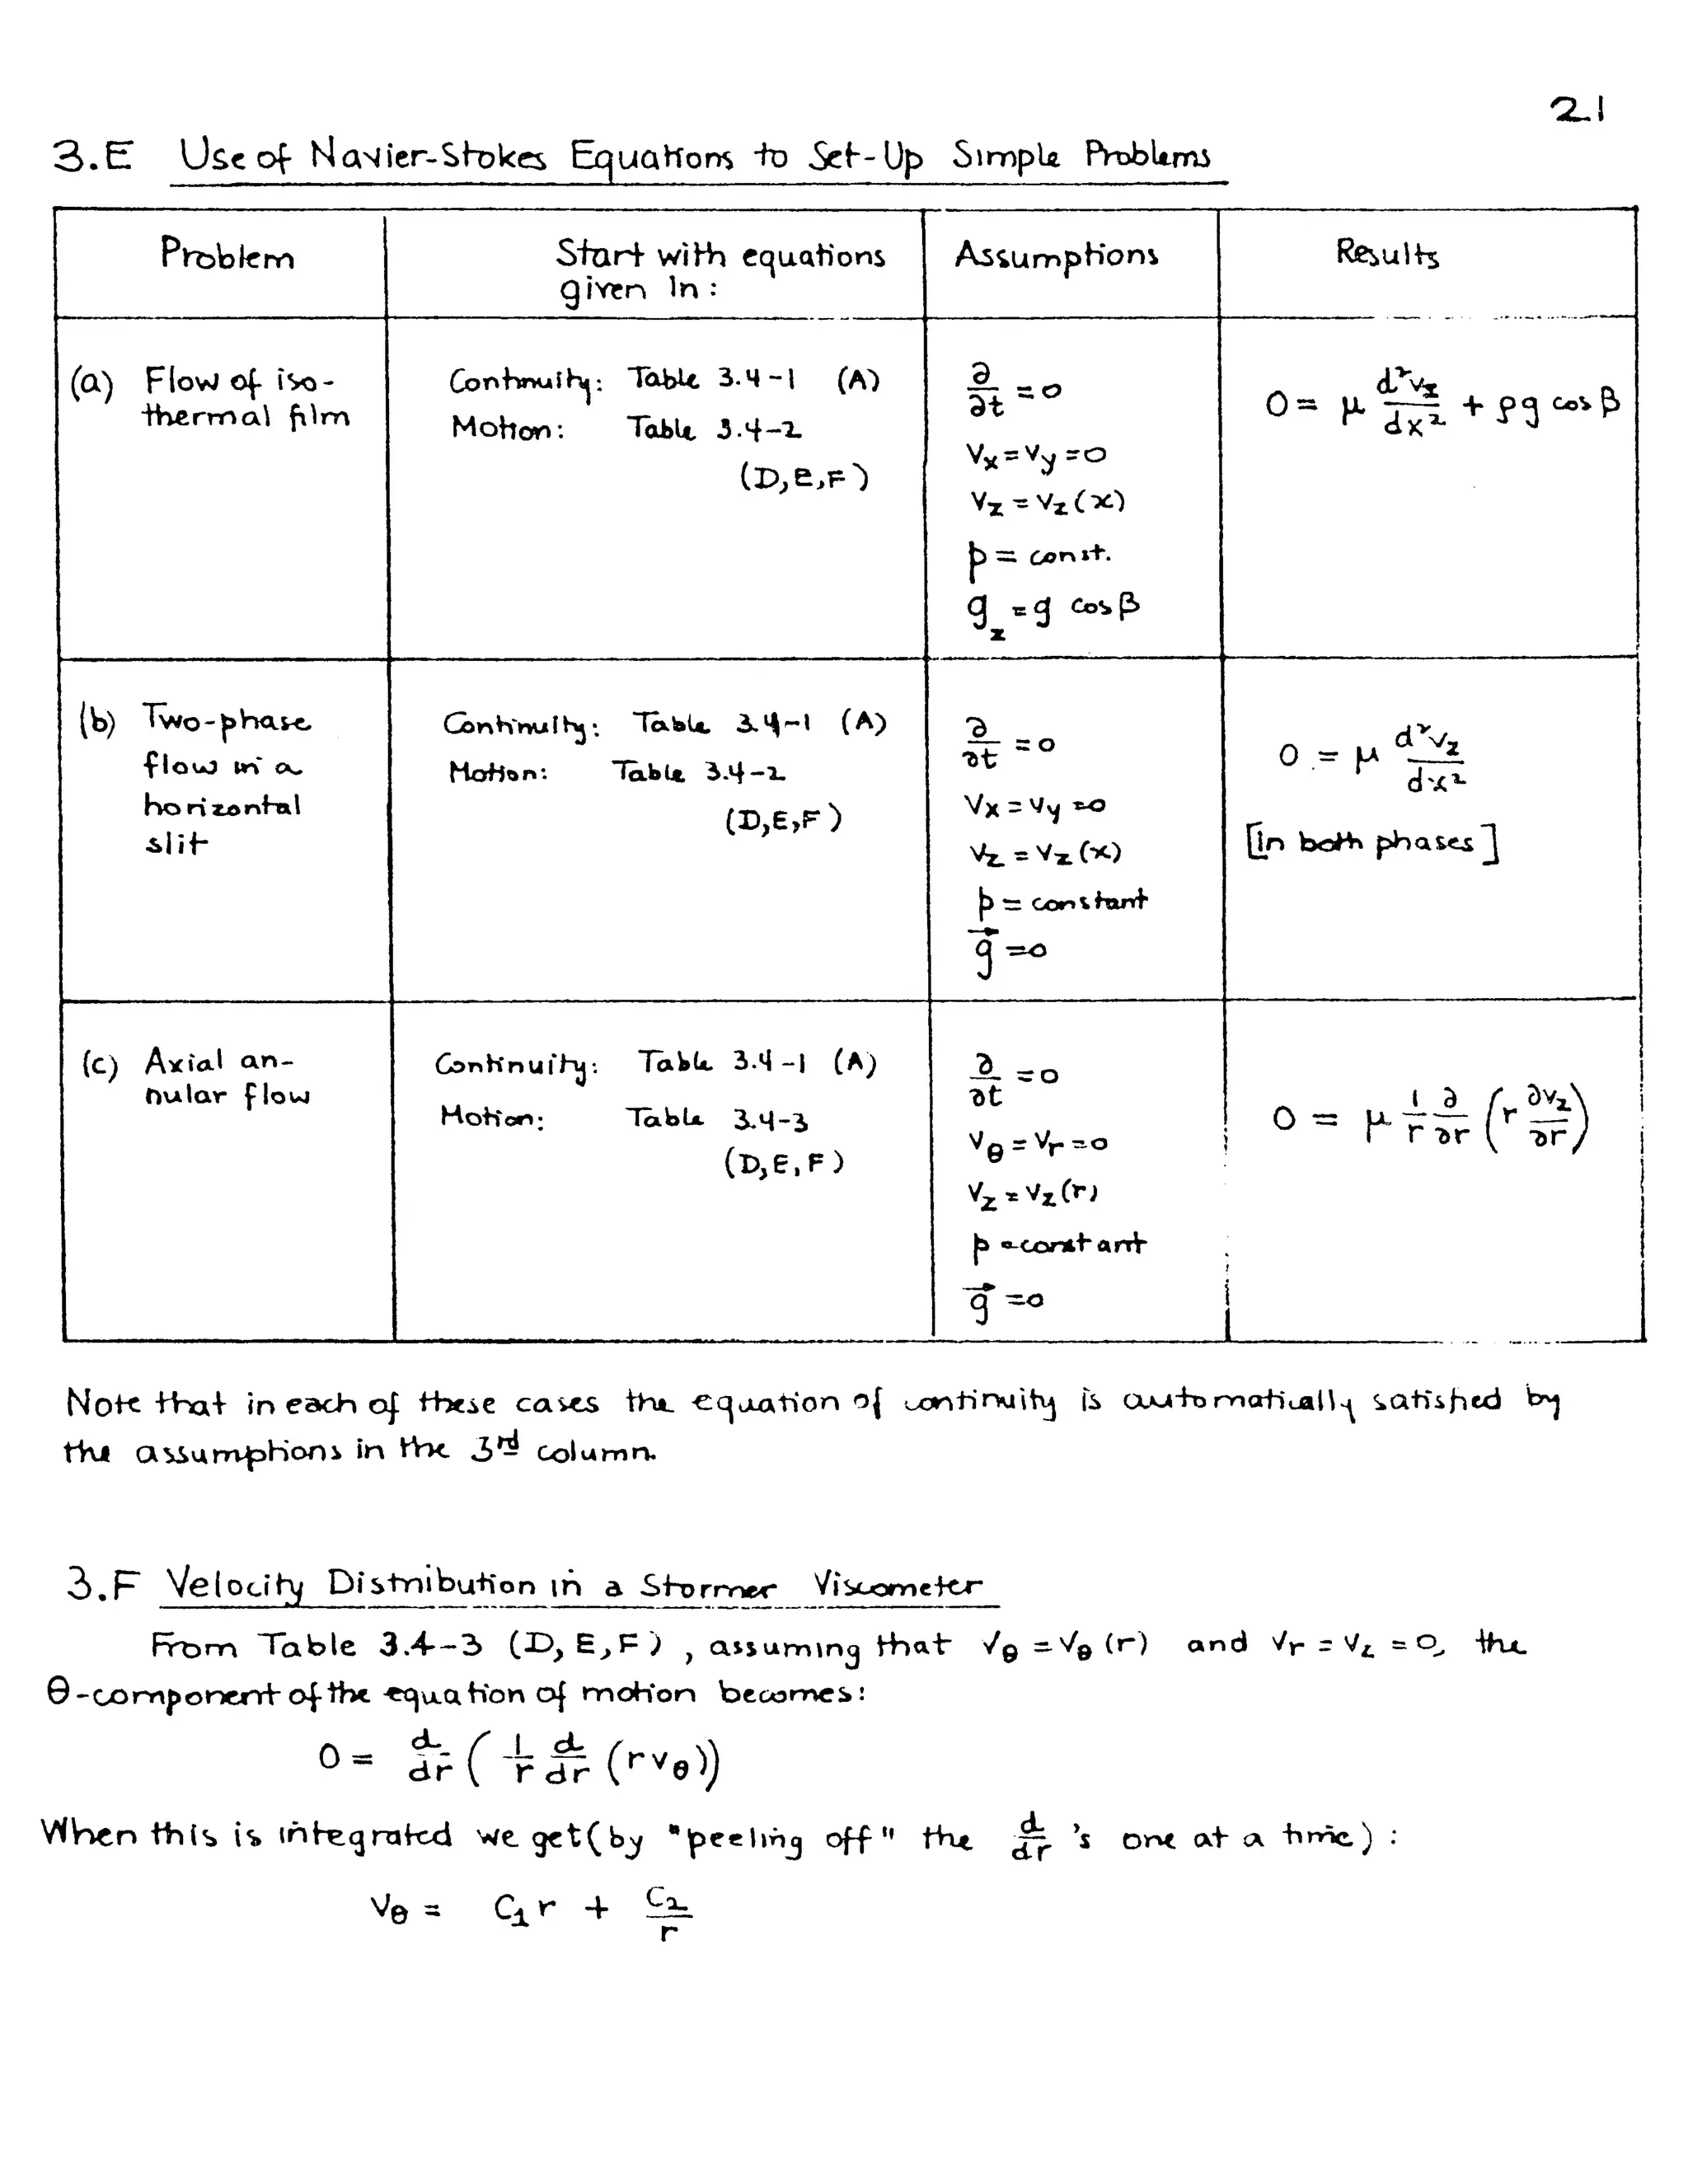 21
3.E Use of Navier-Stokes Equations to Set-Up Simple Problems
Problem
Start with equations
given in:
Assumptions
Results
(a) Flow of iso-
thermal film
Continuity: Table 3.4-1 (A)
Motion: Table 3.4-2
(D,E,F)
∂/∂t = 0
v_x = v_y = 0
v_z = v_z(x)
p = const.
g_z = g cos β
0 = μ d²v_z/dx² + ρg cos β
(b) Two-phase
flow in a
horizontal
slit
Continuity: Table 3.4-1 (A)
Motion: Table 3.4-2
(D,E,F)
∂/∂t = 0
v_x = v_y = 0
v_z = v_z(x)
p = constant
g⃗ = 0
0 = μ d²v_z/dx²
[in both phases]
(c) Axial an-
nular flow
Continuity: Table 3.4-1 (A)
Motion: Table 3.4-3
(D,E,F)
∂/∂t = 0
v_θ = v_r = 0
v_z = v_z(r)
p = constant
g⃗ = 0
0 = μ 1/r ∂/∂r (r ∂v_z/∂r)
Note that in each of these cases the equation of continuity is automatically satisfied by
the assumptions in the 3rd column.
3.F Velocity Distribution in a Stormer Viscometer
From Table 3.4-3 (D,E,F), assuming that v_θ = v_θ(r) and v_r = v_z = 0, the
θ-component of the equation of motion becomes:
0 = d/dr (1/r d/dr (r v_θ))
When this is integrated we get (by "peeling off" the d/dr 's one at a time):
v_θ = C₁ r + C₂/r